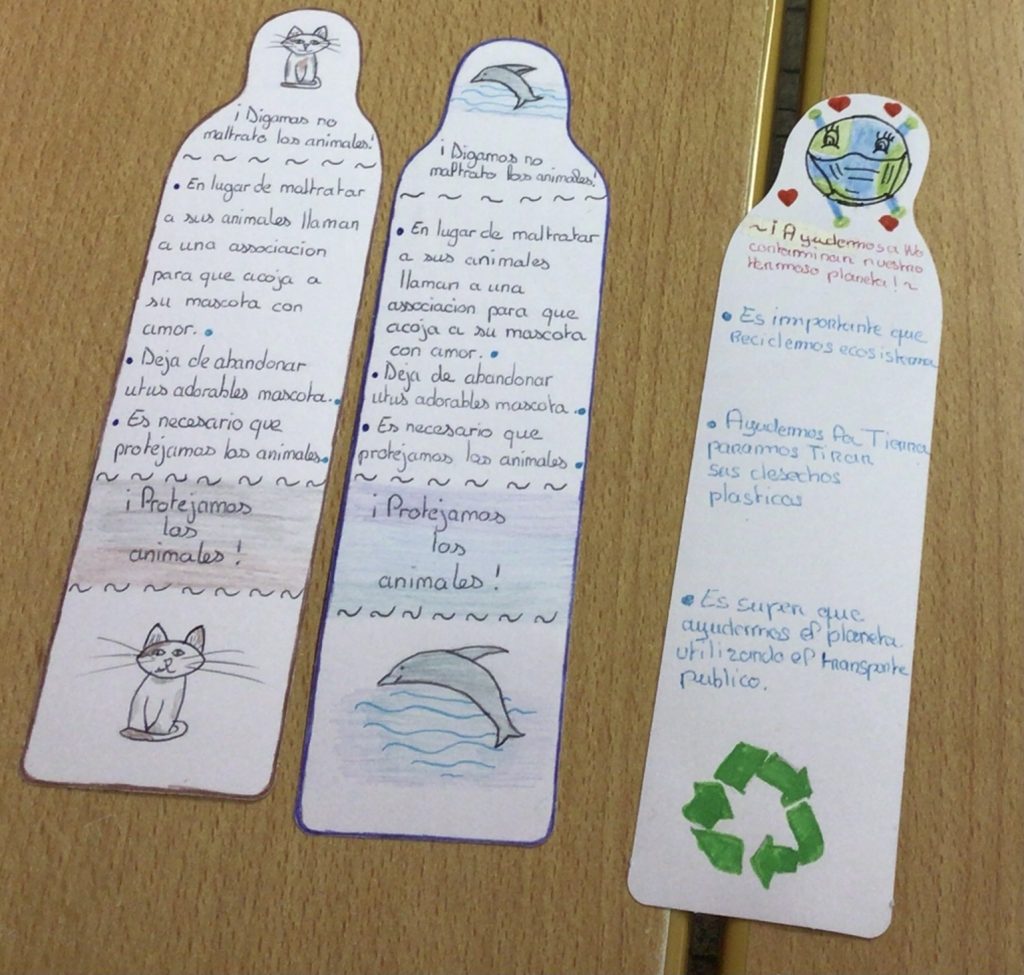 ¡Digamos no
maltrato los animales!
~ ~ ~ ~ ~ ~
• En lugar de maltratar
a sus animales llaman
a una associacion
para que acoja a
su mascota con
amor.
• Deja de abandonar
utus adorables mascota.
• Es necesario que
protejamos los animales.
~ ~ ~ ~ ~ ~ ~
¡Protejamos
los
animales!
~ ~ ~ ~ ~ ~ ~
¡Digamos no
maltrato los animales!
~ ~ ~ ~ ~ ~
• En lugar de maltratar
a sus animales
llaman a una
associacion para que
acoja a su mascota
con amor.
• Deja de abandonar
utus adorables mascota.
• Es necesario que
protejamos los animales.
~ ~ ~ ~ ~ ~ ~
¡Protejamos
los
animales!
~ ~ ~ ~ ~ ~ ~
~¡Ayudemos a No
contaminan nuestro
Hermoso planeta!~
• Es importante que
Reciclemos ecosistema
• Ayudemos la Tierra
paramos Tirar
sus desechos
plasticos
• Es super que
ayudermos el planeta
utilizando el transporte
publico.